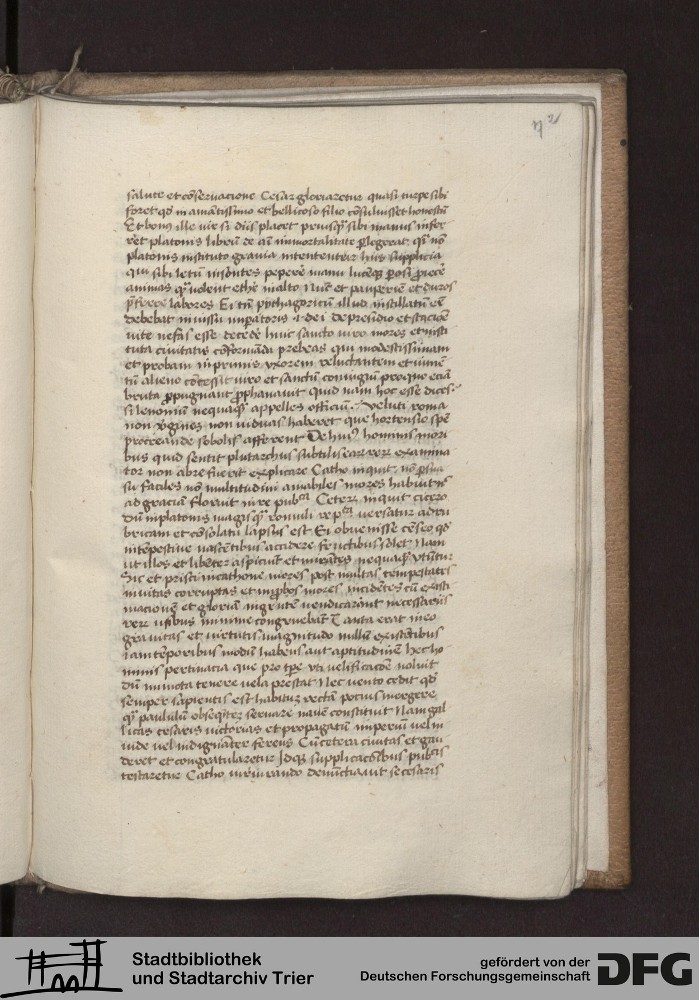 72
salute et cõservacione Cesar gloriaretur quasi turpe sibi
foret qđ in amãtissimo et bellicoso filio cõsuluisset honestũ
Et bonus ille vir si diis placet priusqʒ sibi manus infer
ret platonis librũ de aĩ immortalitate plegerat qĩ nõ
platonis instituto gravia intententur hiis supplicia
qui sibi letũ insontes peperere manu lucẽqʒ perosi proiecere
animas qʒ vellent ethere in alto Nũc et pauperiẽ et duros
pferre labores Ei tñ pythagoricũ illud instillatũ eẽ
debebat iniussu imperatoris .i. dei de presidio et stacione
vite nefas esse decede huic sancto viro mores et insti
tuta civitatis cõformãda prebeas qui modestissimam
et probam in primis vxorem reluctantem et
tũ alieno cõcessit viro et sanctũ coniugiũ proquo eciã
bruta ppugnant pphanavit quid nam hoc esse dices
si lenoniũ nequaqʒ appelles officiũ. Veluti roma
non virgines non viduas haberet que hortensio spẽ
procreande sobolis afferrent De huiꝰ hominis mori
bus quid sentit plutarchus subtilis earum rerum examina
tor non ab re fuerit explicare Catho inquit nõ persua
su faciles nõ multitudini amabiles mores habuit nec
ad graciã floruit in re publica Ceterum inquit cicero
dũ in platonis magis qʒ romuli re publica versatur
et cõsolatu lapsus est Ei obvenisse cẽseo qđ
intẽpestive nascẽtibus accidere fructibus solet Nam
ut illos et libẽter aspiciũt et mirãtes nequaqʒ vtũtur
Sic et prisci in cathone mores post multas tempestates
in vitas corruptas et improbos mores incidẽtes cũ existi
macionẽ et gloriam ingentẽ vendicarũt necessariis
rerum usibus minime congruebãt Tanta erat in eo
gravitas et virtutis magnitudo nullũ existẽtibus
iam tẽporibus modũ habens aut aptitudinẽ hec ho
minis pertinacia que pro tpe vti velificacõe noluit
dũ immota tenere vela prestat Nec vento cedit qđ
semper sapientis est habitũ rectã pocius mergere
qʒ paululũ obseqnter servare navẽ constituit Nam gal
licas cesaris victorias et propagatũ imperiũ vel in
vide vel indignãter ferens Cũ cetera civitas et gau
deret et congratularetur Idqʒ supplicacõibus publicis
testaretur Catho iureiurando denũctiavit se cesaris
Stadtbibliothek
und Stadtarchiv Trier
gefördert von der
Deutschen Forschungsgemeinschaft
DFG